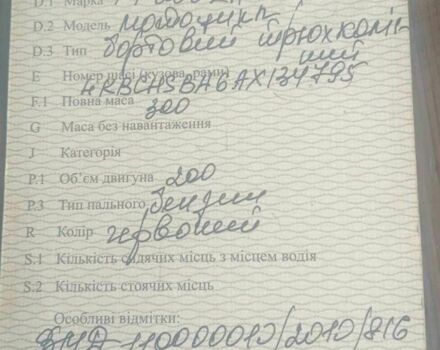 D.1 Марка
D.2 Модель мотоцикл
D.3 Тип бортовий трьохколіс
ний
E Номер шасі (кузова, рами)
4RBCHSBA6AX134795
F.1 Повна маса 300
G Маса без навантаження
J Категорія
P.1 Об'єм двигуна 200
P.3 Тип пального бензин
R Колір червоний
S.1 Кількість сидячих місць з місцем водія
S.2 Кількість стоячих місць
Особливі відмітки:
110000010/2010/816